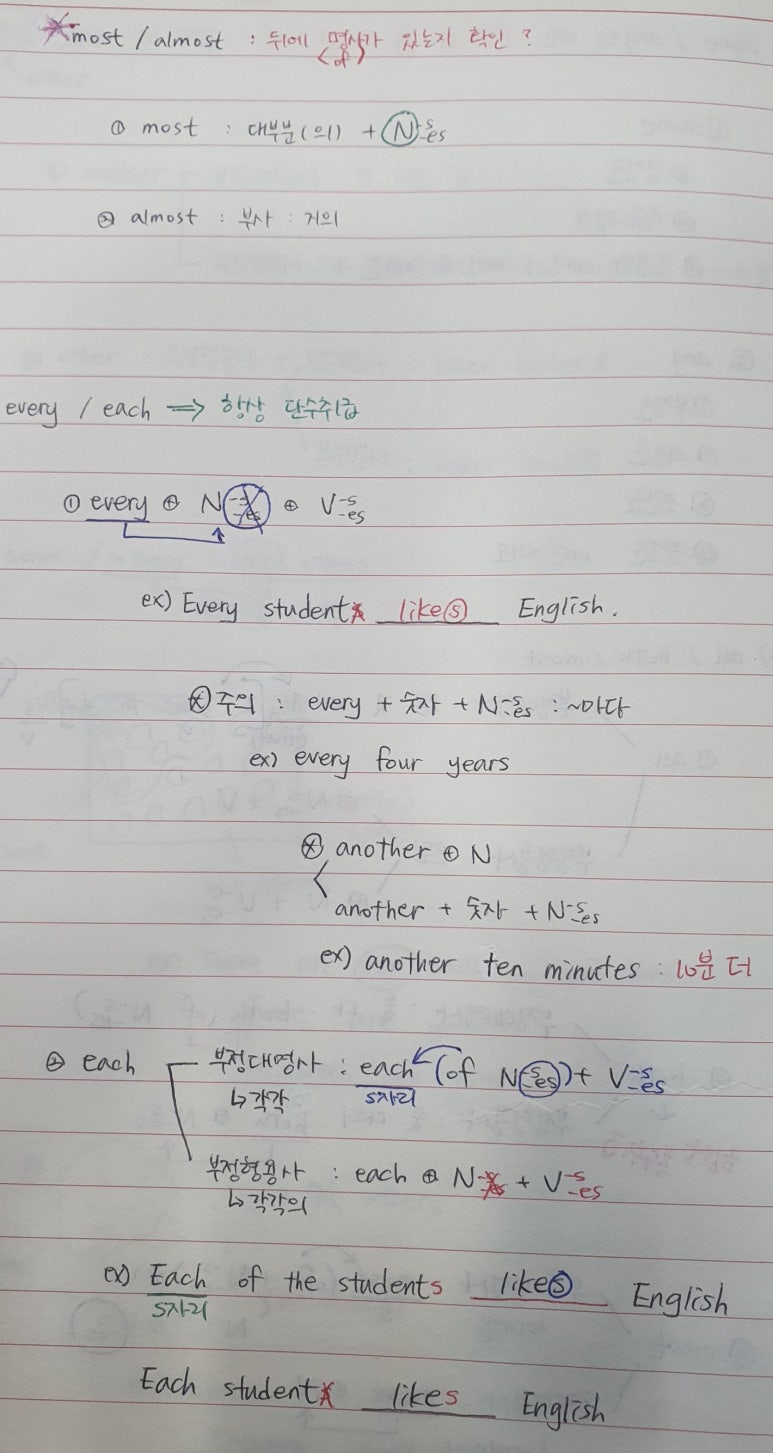 ※most / almost : 뒤에 명사가 있는지 확인?
<of>
① most : 대부분(의) + N-s-es
② almost : 부사 : 거의
every / each => 항상 단수취급
① every ⊕ N-s-es ⊕ V-s-es
ex) Every students likes English.
※주의 : every + 숫자 + N-s-es : ~마다
ex) every four years
※ another ⊕ N
another + 숫자 + N-s-es
ex) another ten minutes : 10분 더
② each 부정대명사 : each (of N-s-es) + V-s-es
↳각각 S자리
부정형용사 : each ⊕ N-s-es + V-s-es
↳각각의
ex) Each of the students likes English
S자리
Each students likes English